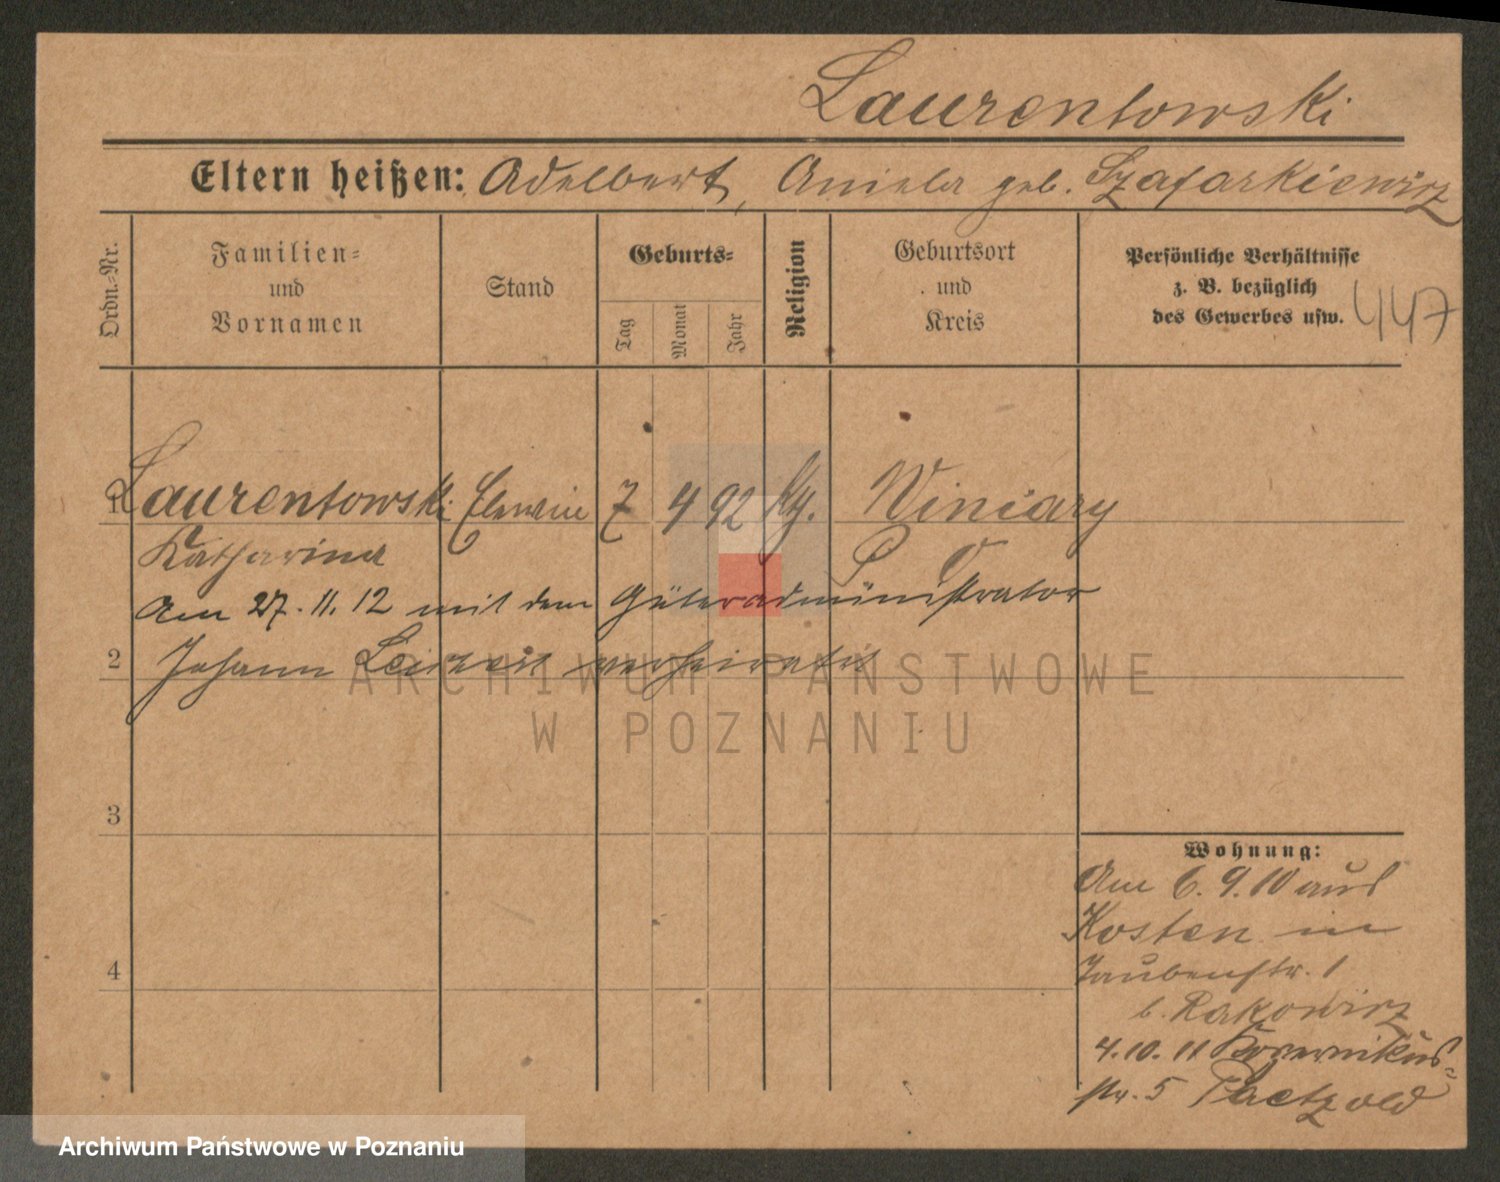 Laurentowski
Eltern heißen: Adelbert, Aniela geb. Szafarkiewicz
Ordn.-Nr.
Familien=
und
Vornamen
Stand
Geburts=
Tag
Monat
Jahr
Religion
Geburtsort
und
Kreis
Persönliche Verhältnisse
z. B. bezüglich
des Gewerbes usw.
447
1 Laurentowski Elewin 7 4 92 kg. Winiary
Katharina P O
Am 27. 11. 12 mit dem Güteradministrator
2 Johann verheiratet
ARCHIWUM PAŃSTWOWE
W POZNANIU
3
Wohnung:
Am 6. 9. 10 aus
Kosten in
4 Taubenstr. 1
b. Rakowicz
4. 10. 11 Kopernikus=
str. 5 Paetzold
Archiwum Państwowe w Poznaniu